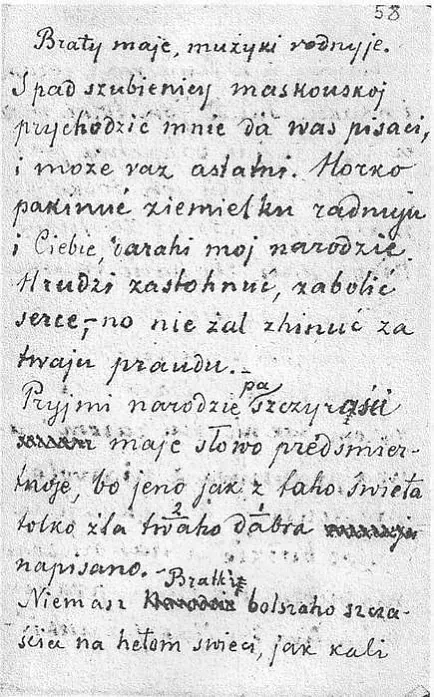 58
Braty maje, mużyki rodnyje.
S pad szubienicy maskouskoj
prychodzić mnie da was pisaci,
i może raz astatni. Horko
pakinuć ziemielku radnuju
i Ciebie, darahi moj narodzie.
Hrudzi zastohnuć, zabolić
serce,- no nie żal zhinuć za
twaju praudu.-
Pryjmi narodzie pa szczyrości
maje słowo predśmier-
tnoje, bo jeno jak z taho świeta
tolko dla twaho dabra
napisano.-
Niemasz Bratki bolszaho szcza-
ścia na hetom swieci, jak kali